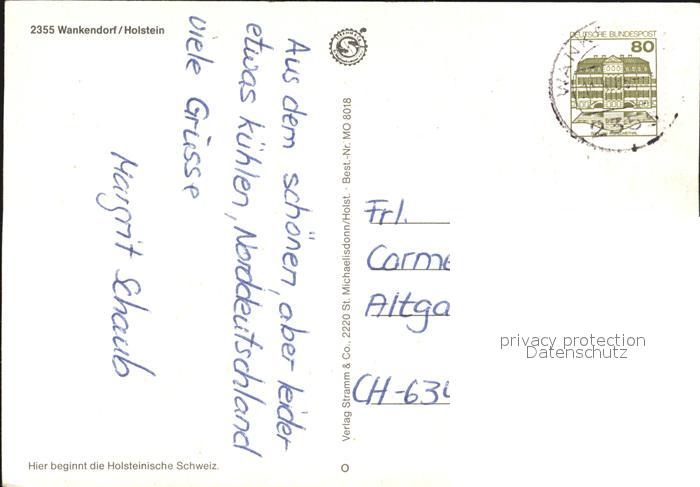 2355 Wankendorf/Holstein
Aus dem schönen, aber leider
etwas kühlen, Norddeutschland
viele Grüsse
Margrit Schaub
Hier beginnt die Holsteinische Schweiz.
Verlag Stramm & Co., 2220 St. Michaelisdonn/Holst. · Best.-Nr. MO 8018
DEUTSCHE BUNDESPOST
80
WANK
235
Frl.
Carme
Altga
CH-634
privacy protection
Datenschutz